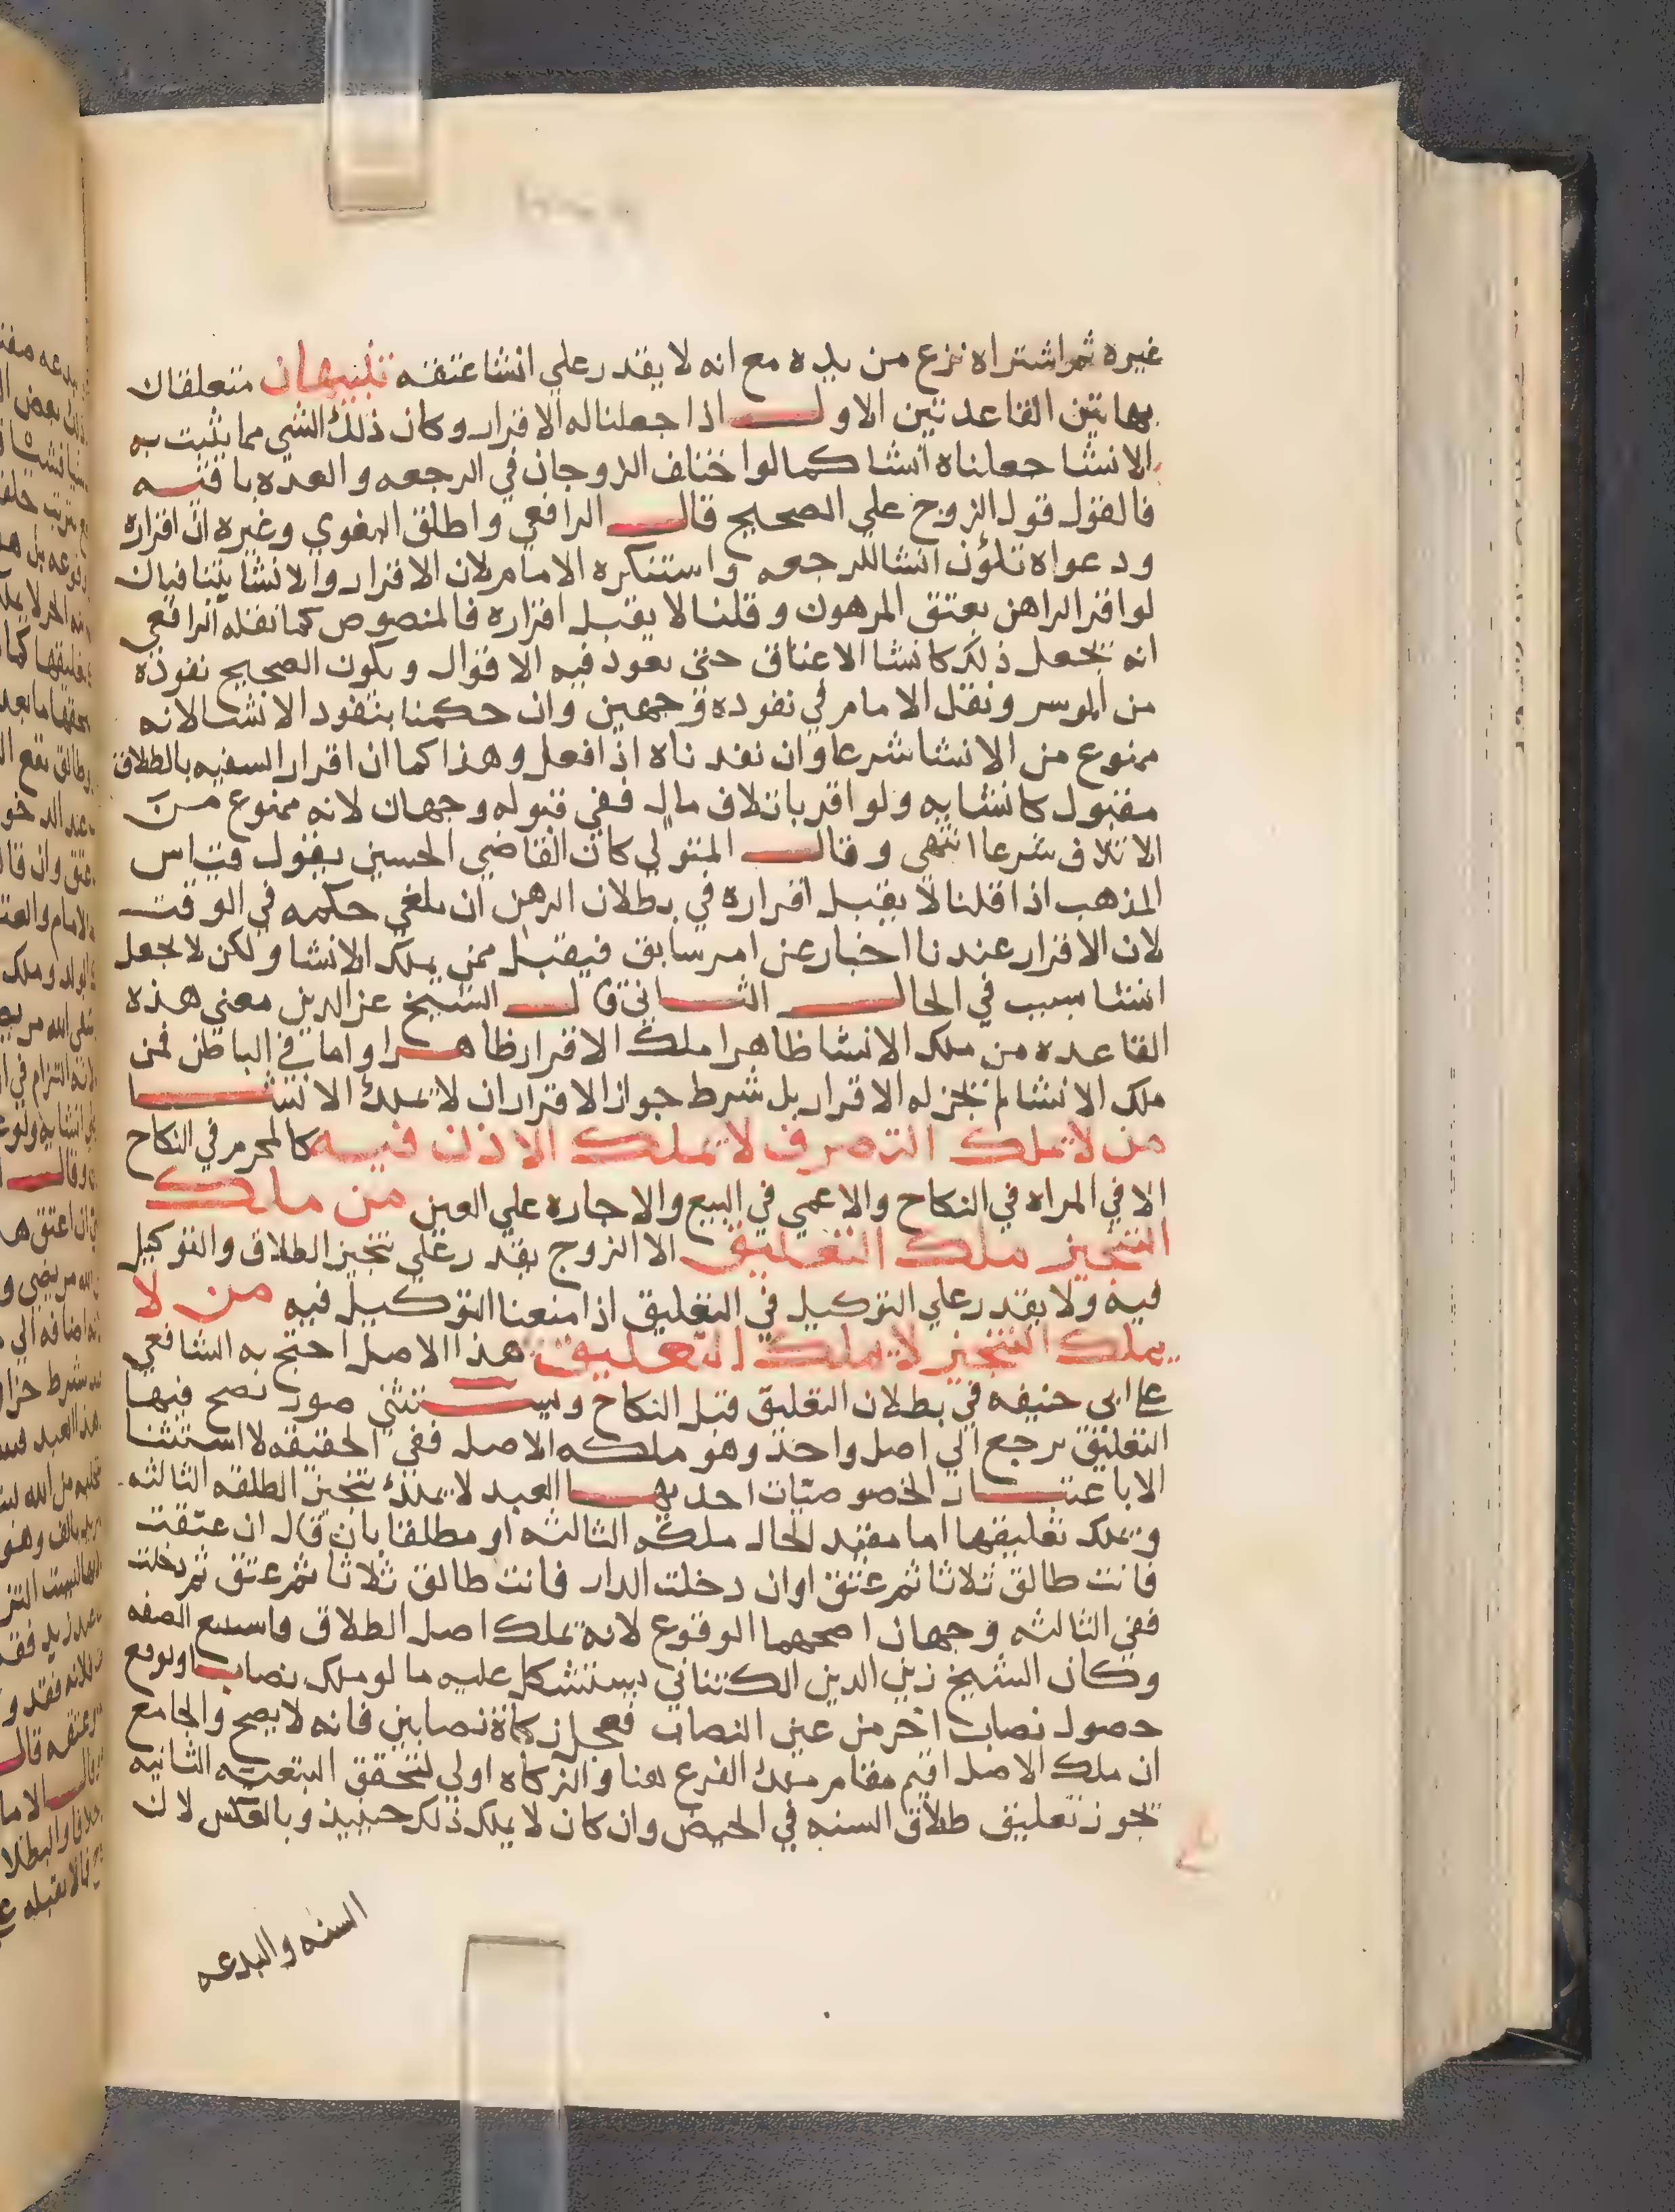 غيره ثم اشتراه نزع من يده مع انه لا يقدر علي انشا عتقه تنبيهان متعلقان
بهاتين القاعدتين الاول اذا جعلنا له الاقرار وكان ذلك الشي مما يثبت به
الانشا جعلناه انشا كما لو اختلف الزوجان في الرجعه والعده باقيه
فالقول قول الزوج علي الصحيح قال الرافعي واطلق البغوي وغيره ان اقراره
ودعواه تكون انشا للرجعه واستنكره الامام لان الاقرار والانشا يتنافيان
لو اقر الراهن بعتق المرهون وقلنا لا يقبل اقراره فالمنصوص كما نقله الرافعي
انه يجعل ذلك كانشا الاعتاق حتي يعود فيه الاقوال ويكون الصحيح نفوذه
من الموسر ونقل الامام في نفوده وجهين وان حكمنا بنفود الانشا لانه
ممنوع من الانشا شرعا وان نفدناه اذا فعل وهذا كما ان اقرار السفيه بالطلاق
مقبول كانشايه ولو اقر باتلاف مال ففي قبوله وجهان لانه ممنوع من
الاتلاف شرعا انتهي وقال المتولي كان القاضي الحسين يقول قياس
المذهب اذا قلنا لا يقبل اقراره في بطلان الرهن ان يلغي حكمه في الوقت
لان الاقرار عندنا اخبار عن امر سابق فيقبل ممن يملك الانشا ولكن لا يجعل
انشا بسبب في الحال الثاني قال الشيخ عز الدين معني هذه
القاعده من ملك الانشا ظاهرا ملك الاقرار ظاهرا واما في الباطن فمن
ملك الانشا لم يجز له الاقرار بل شرط جواز الاقرار ان لا يملك الانشا
من لا يملك التصرف لا يملك الاذن فيه كالمحرم في النكاح
الا في المراه في النكاح والاعمي في البيع والاجاره علي العين من ملك
التنجيز ملك التعليق الا الزوج يقدر علي تنجيز الطلاق والتوكيل
فيه ولا يقدر علي التوكيل في التعليق اذا منعنا التوكيل فيه من لا
يملك التنجيز لا يملك التعليق هذا الاصل احتج به الشافعي
علي ابي حنيفه في بطلان التعليق قبل النكاح ويستثني صور يصح فيها
التعليق يرجع الي اصل واحد وهو ملكه الاصل ففي الحقيقه لا استثنا
الا باعتبار الخصوصيات احديها العبد لا يملك تنجيز الطلقه الثالثه
ويملك تعليقها اما مقيد لحال ملكه الثالثه او مطلقا بان قال ان عتقت
فانت طالق ثلاثا ثم عتق او ان دخلت الدار فانت طالق ثلاثا ثم عتق ثم دخلت
ففي الثالثه وجهان اصحهما الوقوع لانه يملك اصل الطلاق الصفه
وكان الشيخ زين الدين الكتناني يستشكل عليه ما لو ملك نصابا وتوقع
حصول نصاب اخر من عين النصاب فعجل زكاة نصابين فانه لا يصح والجامع
ان ملك الاصل اقيم مقام ملك الفرع هنا والزكاه اولي لتحقق التبعيه الثانيه
يجوز تعليق طلاق السنه في الحيض وان كان لا يملك ذلك حينيذ وبالعكس لان
السنه والبدعه